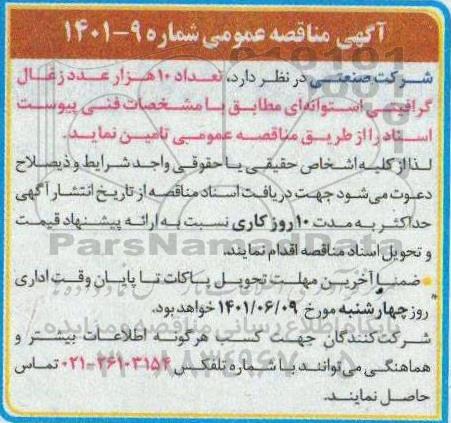 آگهی مناقصه عمومی شماره ۹-۱۴۰۱
شرکت صنعتی در نظر دارد، تعداد ۱۰ هزار عدد زغال
گرافیتی استوانه‌ای مطابق با مشخصات فنی پیوست
اسناد را از طریق مناقصه عمومی تامین نماید.
لذا از کلیه اشخاص حقیقی یا حقوقی واجد شرایط و ذیصلاح
دعوت می‌شود جهت دریافت اسناد مناقصه از تاریخ انتشار آگهی
حداکثر به مدت ۱۰ روز کاری نسبت به ارائه پیشنهاد قیمت
و تحویل اسناد مناقصه اقدام نمایند.
ParsNamadData
ضمنا آخرین مهلت تحویل پاکات تا پایان وقت اداری
روز چهارشنبه مورخ ۱۴۰۱/۰۶/۰۹ خواهد بود.
پایگاه اطلاع رسانی مناقصه و مزایده
شرکت‌کنندگان جهت کسب هرگونه اطلاعات بیشتر و
هماهنگی می‌توانند با شماره تلفکس ۳۶۱۰۳۱۵۴-۰۲۱ تماس
حاصل نمایند.